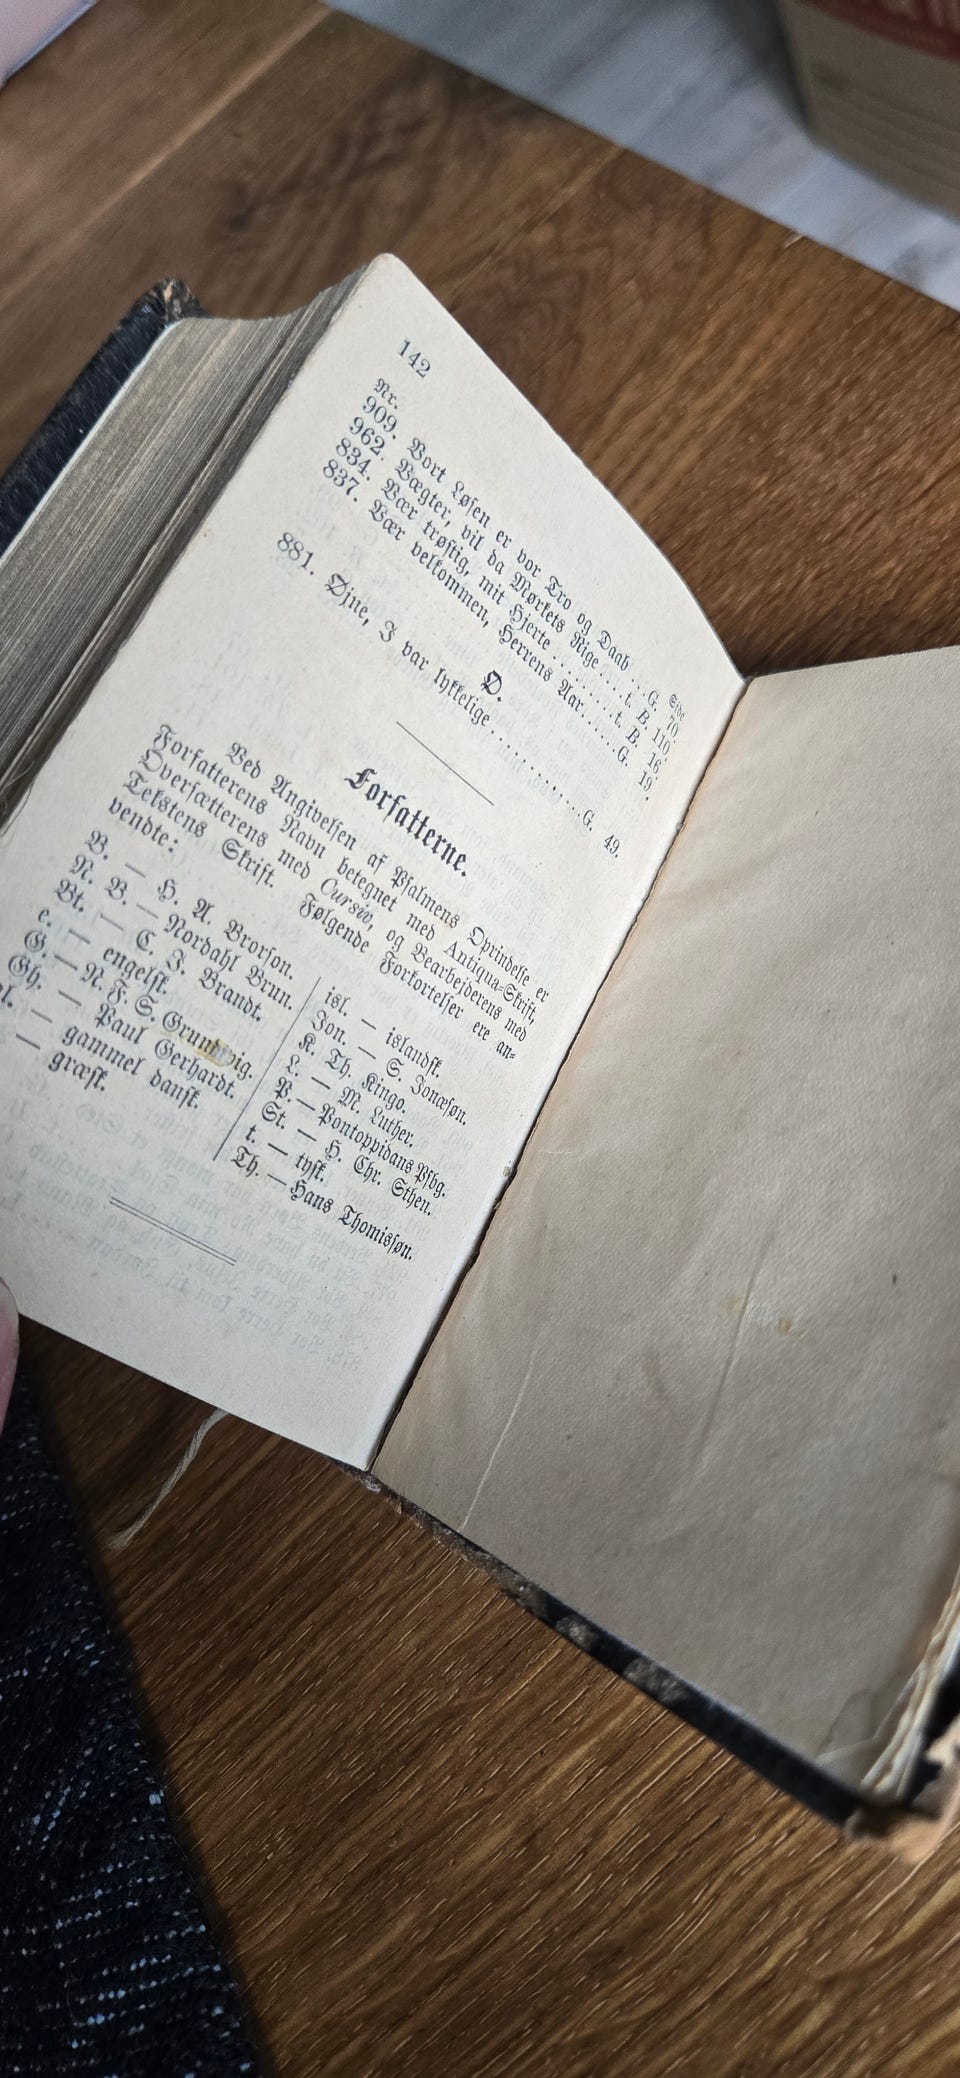 142
Nr.
Side
909. Vort Løsen er vor Tro og Daab...G. 70.
962. Vægter, vil da Mørkets Rige....t. B. 110.
834. Vær trøstig, mit Hjerte.........t. B. 16.
837. Vær velkommen, Herrens Aar......G. 19.
Ø.
881. Øjne, I var lykkelige............G. 49.
Forfatterne.
Ved Angivelsen af Psalmens Oprindelse er
Forfatterens Navn betegnet med Antiqua-Skrift,
Oversætterens med Cursiv, og Bearbejderens med
Tekstens Skrift. Følgende Forkortelser ere an-
vendte:
B. — H. A. Brorson.
N. B. — Nordahl Brun.
Bt. — C. J. Brandt.
e. — engelsk.
G. — N. F. S. Grundtvig.
Gh. — Paul Gerhardt.
— gammel dansk.
— græsk.
isl. — islandsk.
Jon. — S. Jonæsøn.
K. Th. Kingo.
L. — M. Luther.
P. — Pontoppidans Psbg.
St. — H. Chr. Sthen.
t. — tysk.
Th. — Hans Thomissøn.